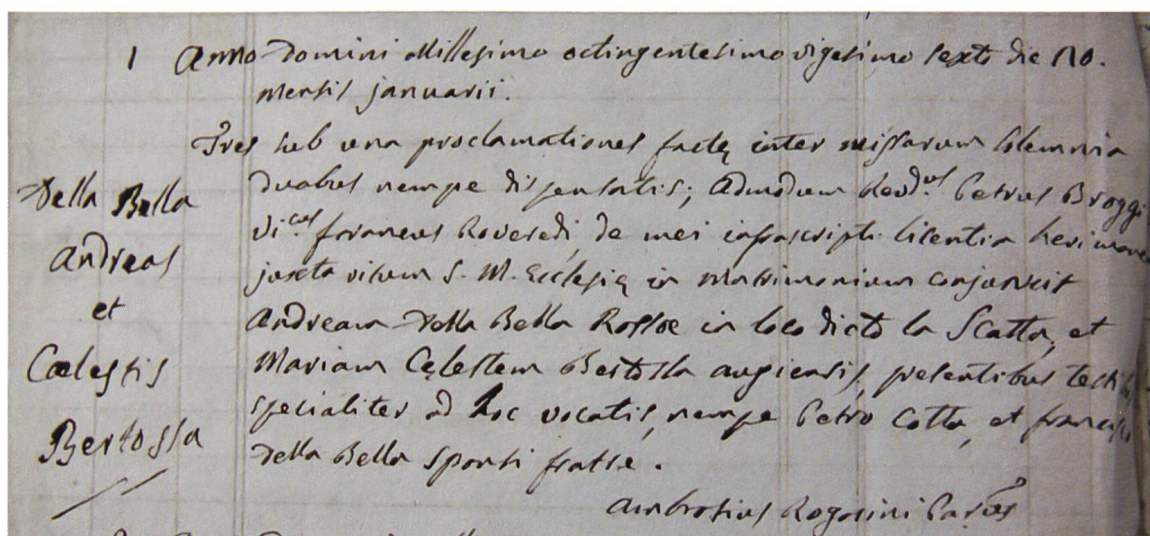 1 Anno Domini Millesimo octingentesimo vigesimo sexto die 10.
mensis januarii.
Tres sub una proclamationes factę inter missarum solemnia
duabus nempe dispensatis; Admodum Revd.us Petrus Broggi
Vi.cus foraneus Roveredi, de mei infrascripti licentia heri mane
juxta ritum S. M. Ecclesię in Matrimonium conjunxit
Andream Della Bella Rossoe in loco dicto la Scatta, et
Mariam Cęlestem Bertossa augiensis, presentibus
specialiter ad hoc vocatis, nempe Petro Cotta, et
Della Bella sponsi fratre.
Ambrosius Rogorini
Della Bella
Andreas
et
Cœlestis
Bertossa